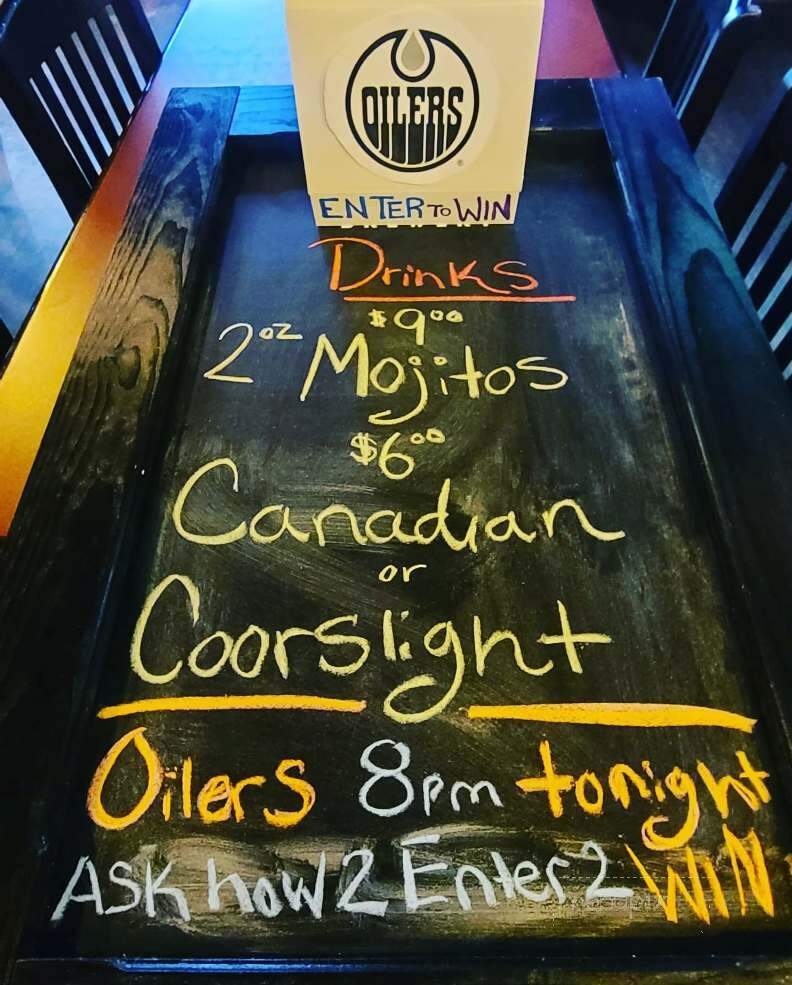 OILERS
ENTER TO WIN
Drinks
$9.00
2oz Mojitos
$6.00
Canadian
or
Coorslight
Oilers 8pm tonight
ASK how 2 Enter 2 WIN